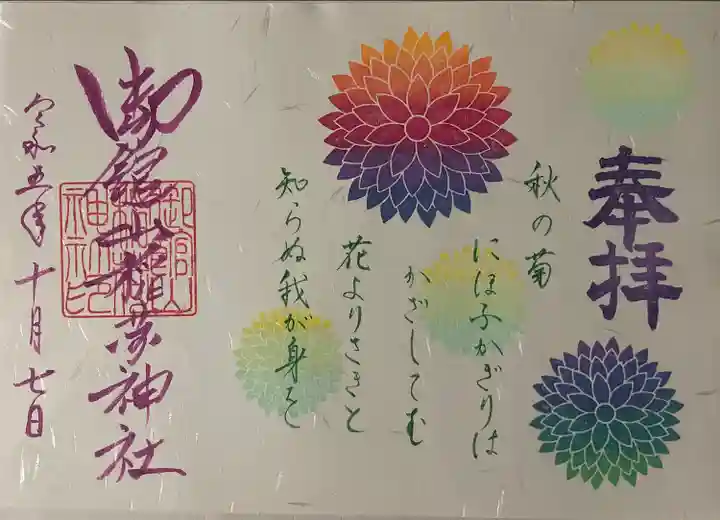 奉拝
秋の菊
にほふかぎりは
かざしてむ
花よりさきと
知らぬ我が身を
御館山稲荷神社
御館山
稲荷
神社印
令和五年十月七日